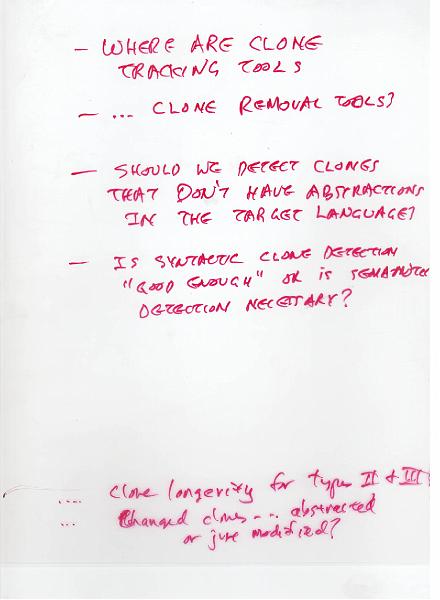 — WHERE ARE CLONE
TRACKING TOOLS
— ... CLONE REMOVAL TOOLS?
— SHOULD WE DETECT CLONES
THAT DON'T HAVE ABSTRACTIONS
IN THE TARGET LANGUAGE?
— IS SYNTACTIC CLONE DETECTION
"GOOD ENOUGH" OR IS SEMANTIC
DETECTION NECESSARY?
.... Clone longevity for types II & III
... Changed clones --- abstracted
or just modified?